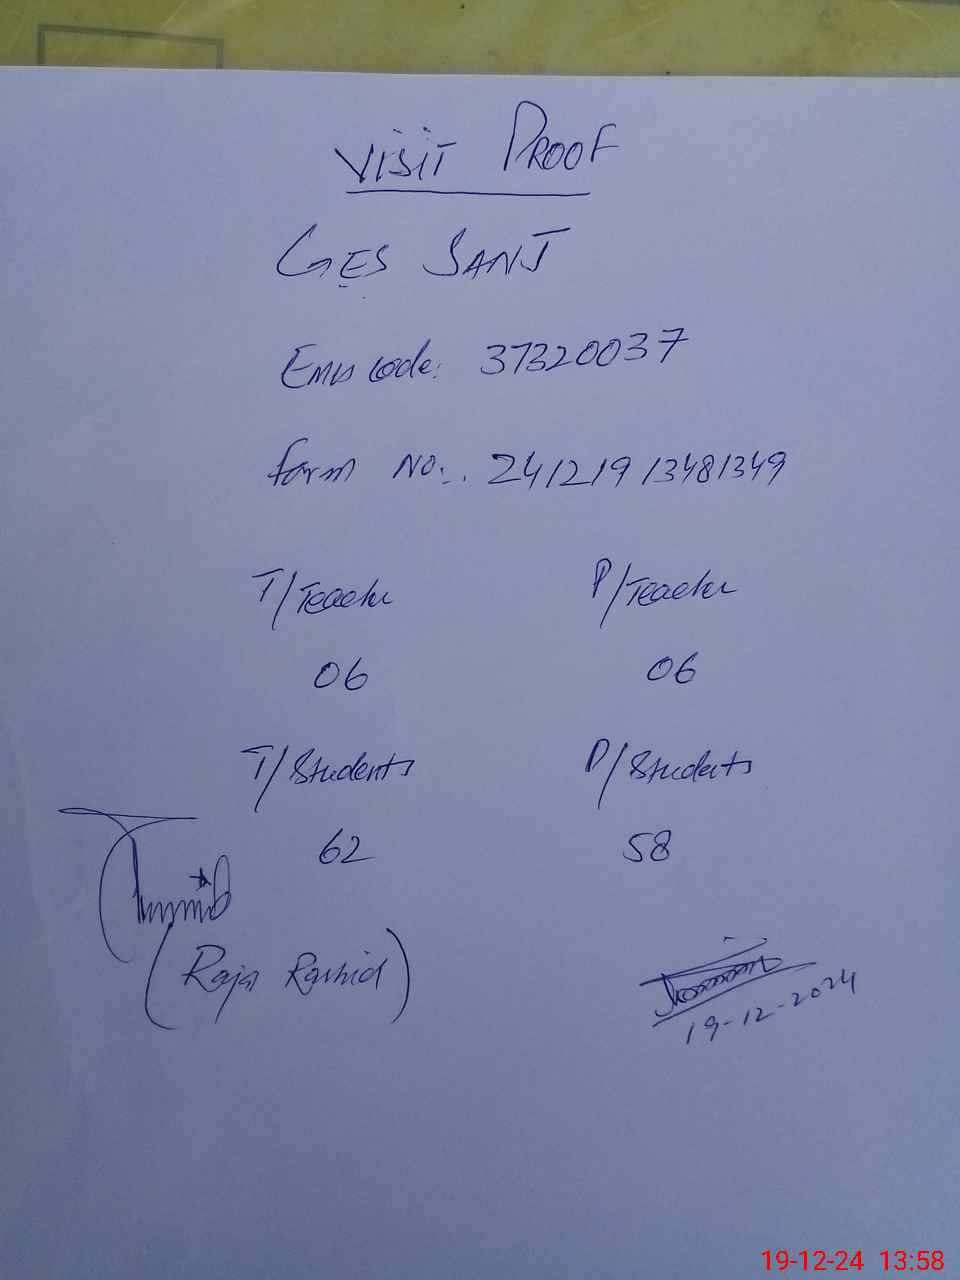 VISIT PROOF
GES SANJ
Emis code: 37320037
Form No:. 24121913481349
T/Teacher P/Teacher
06 06
T/Students P/Students
62 58
(Raja Rashid)
19-12-2024
19-12-24 13:58